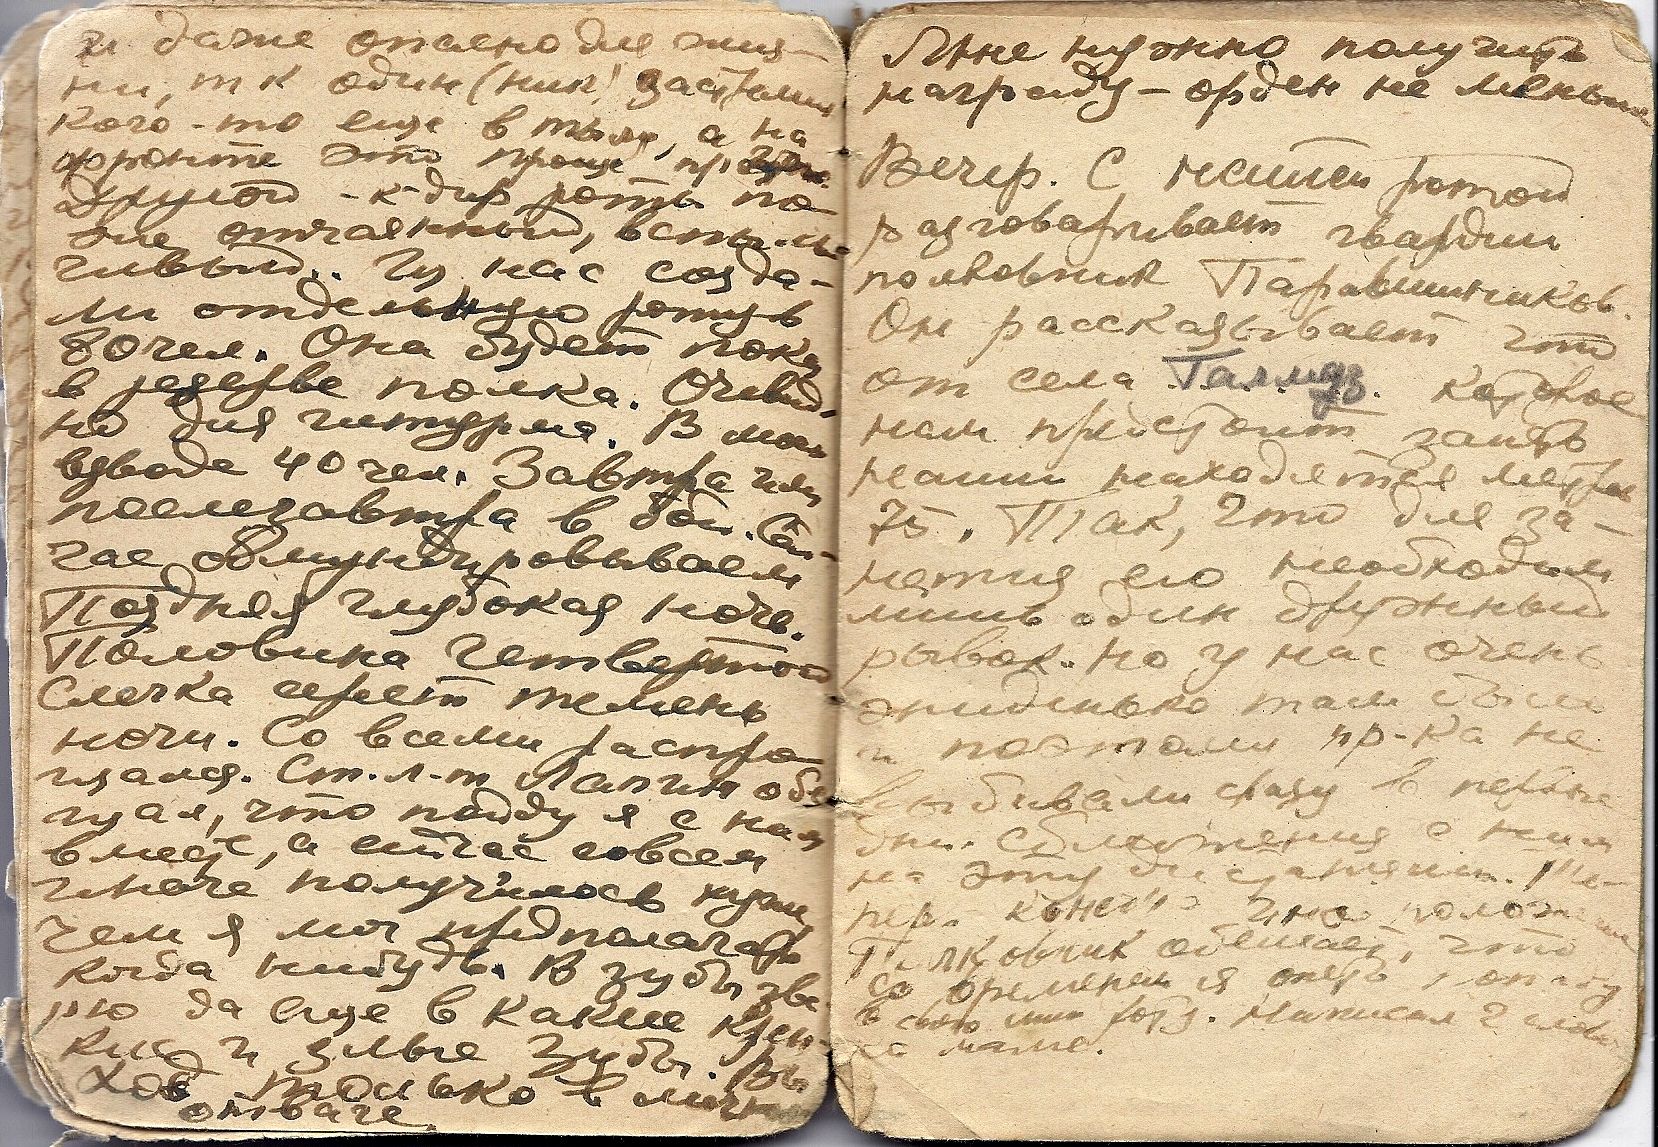 и даже опасно для жиз-
ни, т к один (ник) застрелил
кого-то еще в тылу, а на
фронте это проще
другой - к-дир роты то-
же отчаянный, вспыль-
чивый.. У нас созда-
ли отдельную роту в
80 чел. Она будет пока
в резерве полка. Очевид-
но для штурма. В моем
взводе 40 чел. Завтра или
послезавтра в бой. Сей-
час обмундировываем
Поздняя глубокая ночь.
Половина четвертого
Свечка серет темень
ночи. Со всеми распро-
щался. Ст. л-т Лапин обе
щал, что пойду я с ним
вместе, а сейчас совсем
иначе получилось хуже
чем я мог предполагать
когда нибудь. В зубы зве-
рю да еще в какие креп-
кие и злые зубы. Вы
ход только в личной
отваге.
Мне нужно получить
награду - орден не меньше
Вечер. С нашей ротой
разговаривает гвардии
полковник Паравишников.
Он рассказывает что
от села Галмуз. которое
нам предстоит занять
наши находятся метрах
75. Так, что для за-
нятия его необходим
лишь один дружный
рывок. Но у нас очень
жиденько там было
и поэтому пр-ка не
выбивали сразу в первые
дни сближения с ним
на эту дистанцию. Те-
перь конечно иное положение
Полковник обещает, что
со временем я опять попаду
в свою мин роту. Написал 2 слов
ка маме.